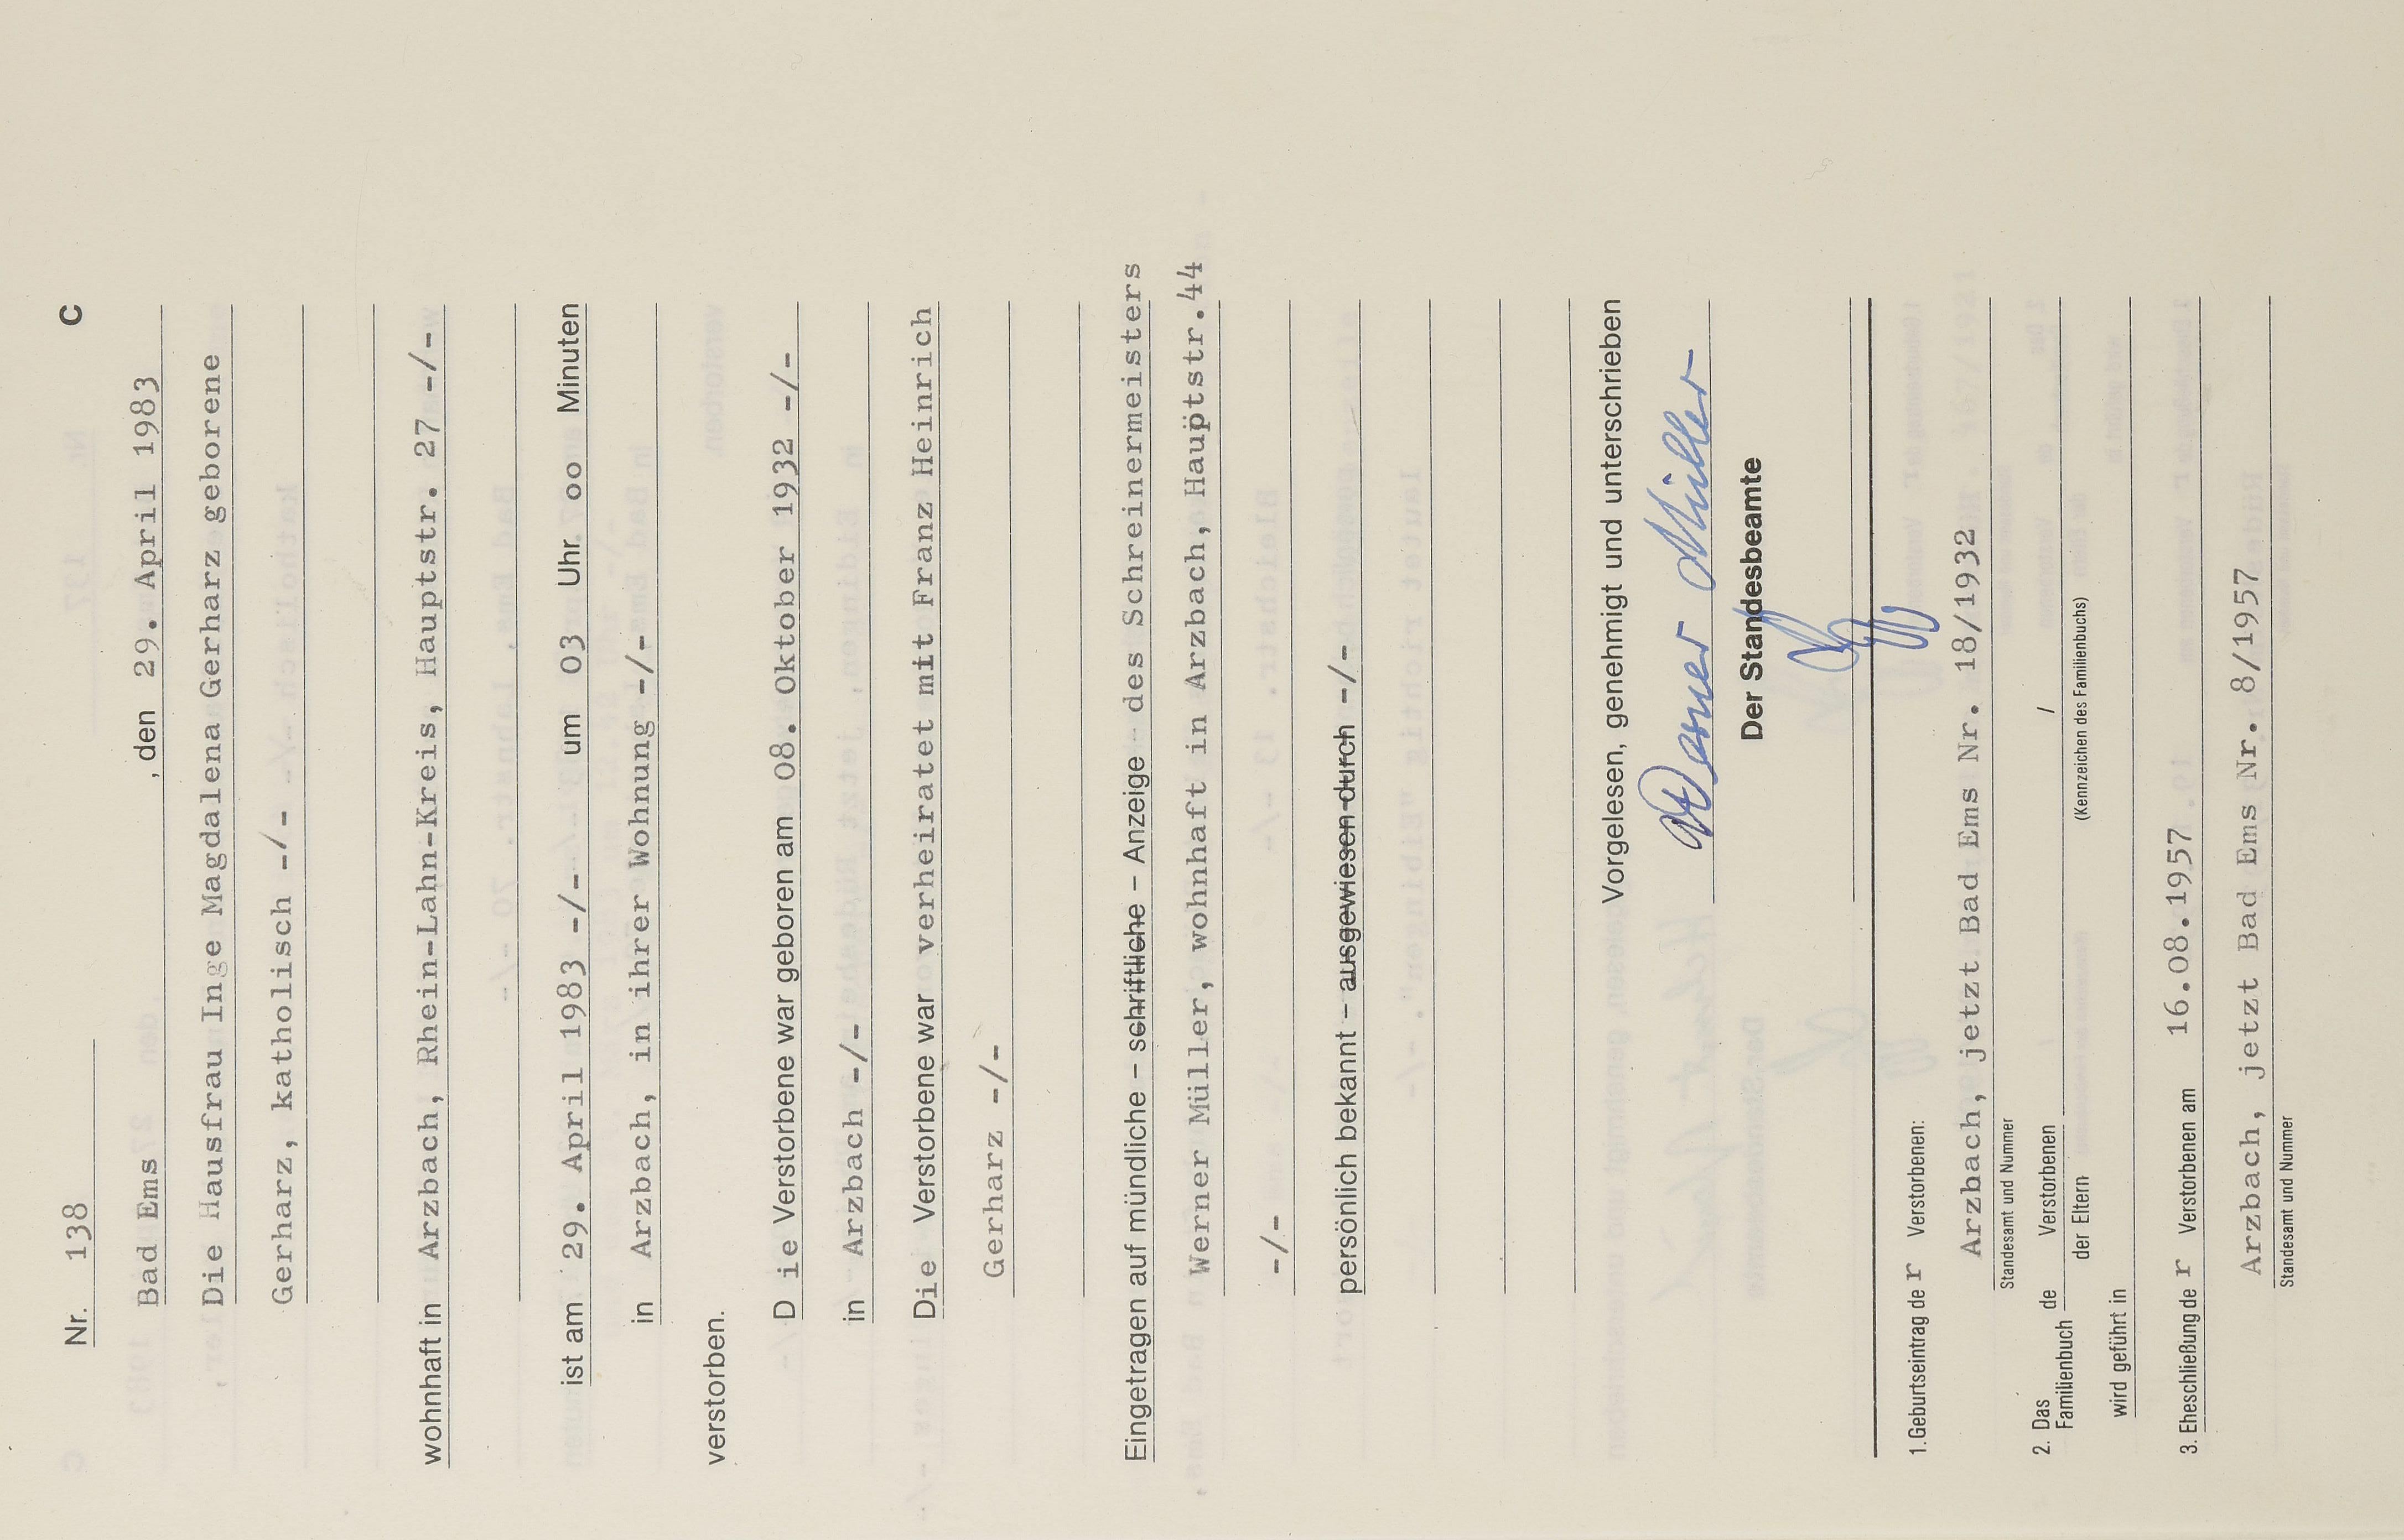 Nr. 138 C
Bad Ems , den 29. April 1983
Die Hausfrau Inge Magdalena Gerharz geborene
Gerharz, katholisch -/-
wohnhaft in Arzbach, Rhein-Lahn-Kreis, Hauptstr. 27 -/-
ist am 29. April 1983 -/- um 03 Uhr oo Minuten
in Arzbach, in ihrer Wohnung -/-
verstorben.
D ie Verstorbene war geboren am 08. Oktober 1932 -/-
in Arzbach -/-
Die Verstorbene war verheiratet mit Franz Heinrich
Gerharz -/-
Eingetragen auf mündliche – schriftliche – Anzeige des Schreinermeisters
Werner Müller, wohnhaft in Arzbach, Hauptstr. 44
-/-
persönlich bekannt – ausgewiesen durch -/-
Vorgelesen, genehmigt und unterschrieben
Werner Müller
Der Standesbeamte
1. Geburtseintrag de r Verstorbenen:
Arzbach, jetzt Bad Ems Nr. 18/1932
Standesamt und Nummer
2. Das Familienbuch de Verstorbenen /
der Eltern (Kennzeichen des Familienbuchs)
wird geführt in
3. Eheschließung de r Verstorbenen am 16.08.1957
Arzbach, jetzt Bad Ems Nr. 8/1957
Standesamt und Nummer